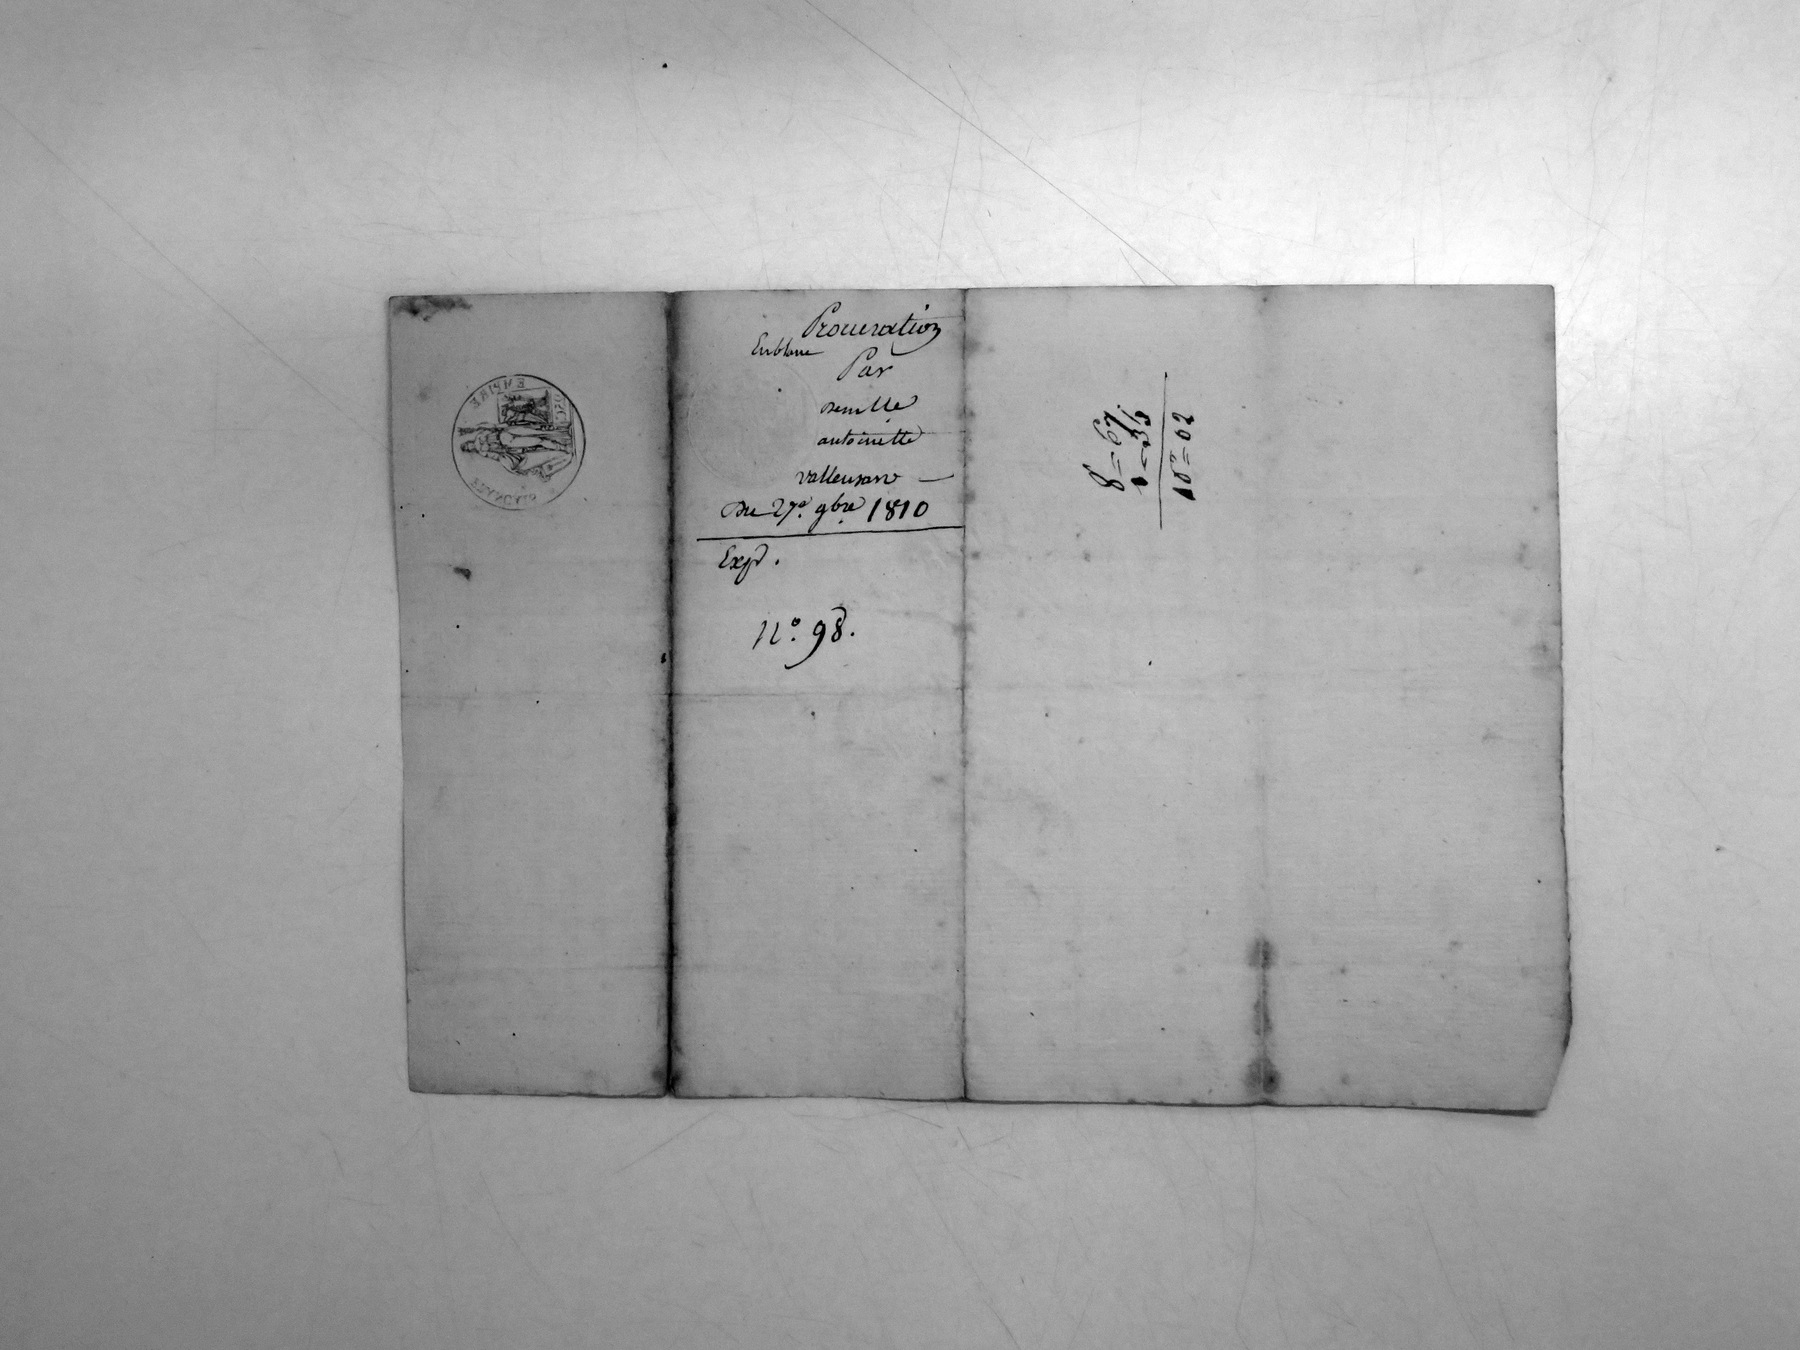 EMPIRE
FRANÇAIS
Procuration
En blanc
Par
demlle
antoinette
Du 27e. 9bre 1810
Expd.
N°. 98.
8 = 67.